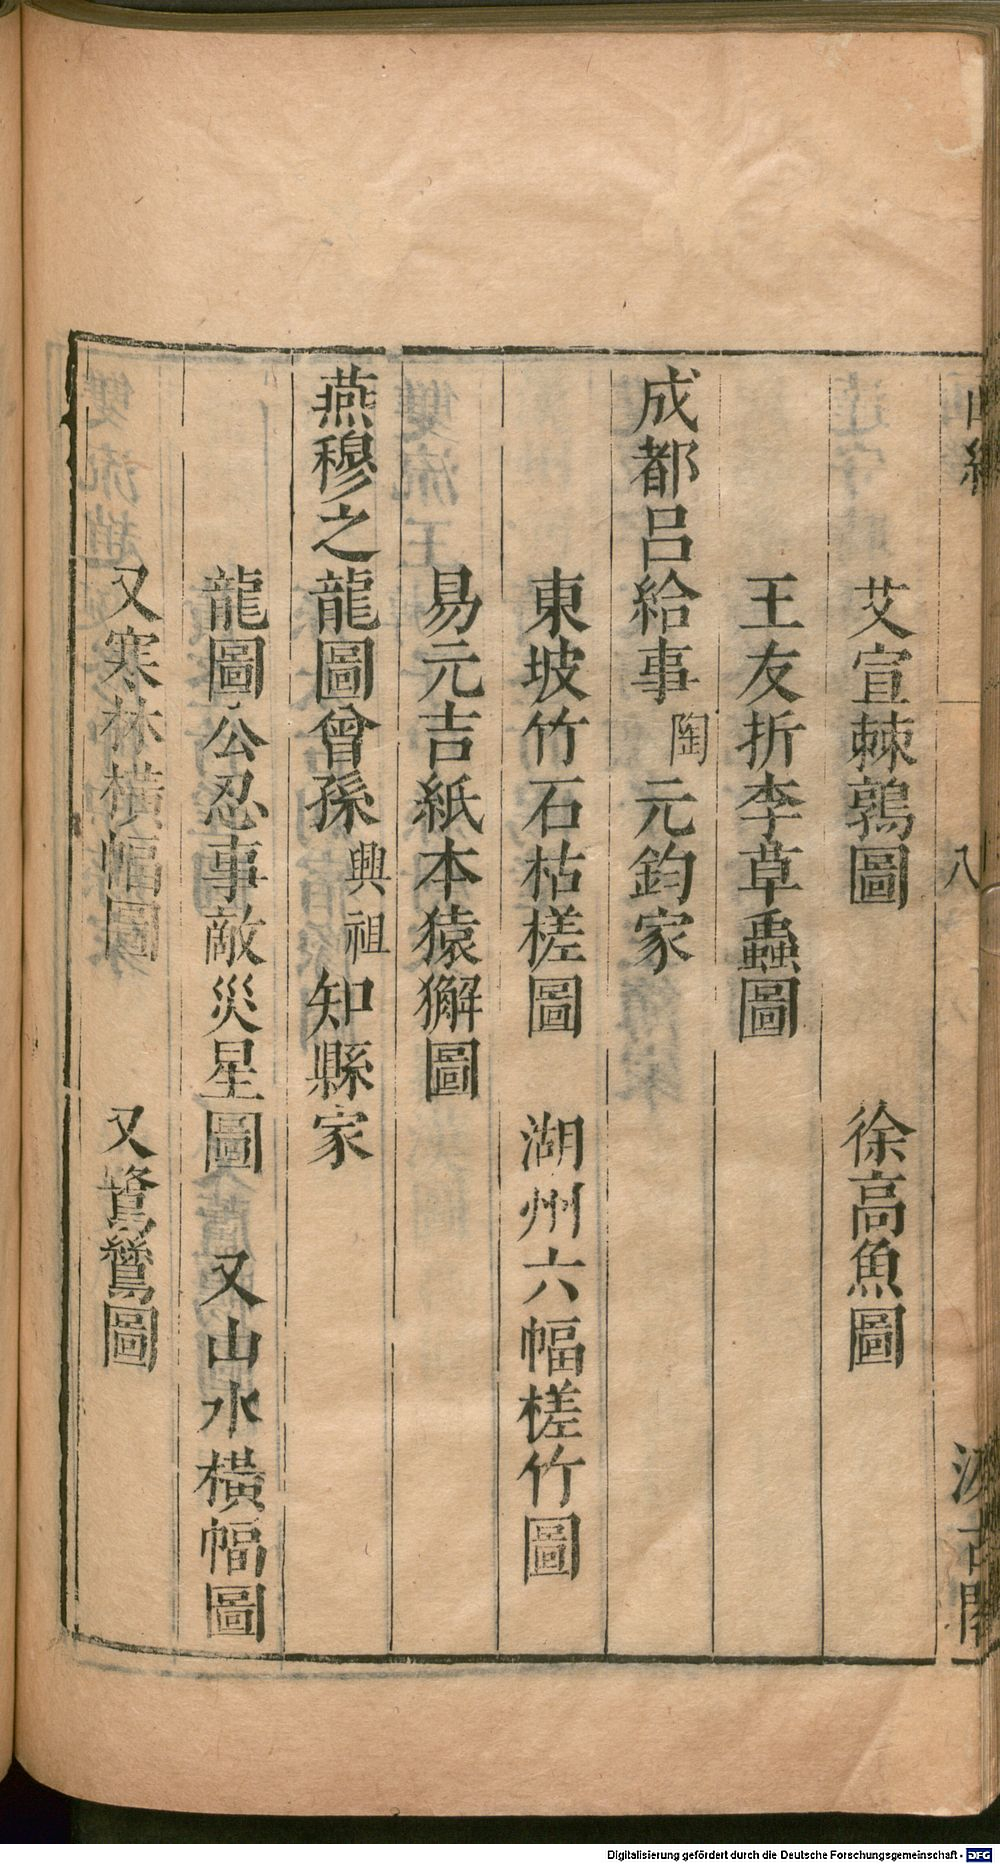 艾宣棘鶉圖 徐高魚圖
王友折李草蟲圖
成都呂給事陶元鈞家
東坡竹石枯槎圖 湖州六幅槎竹圖
易元吉紙本猿獬圖
燕穆之龍圖曾孫興祖知縣家
龍圖公忍事敵災星圖 又山水橫幅圖
又寒林橫幅圖 又鷺鷥圖
八
汲古閣
Digitalisierung gefördert durch die Deutsche Forschungsgemeinschaft - DFG